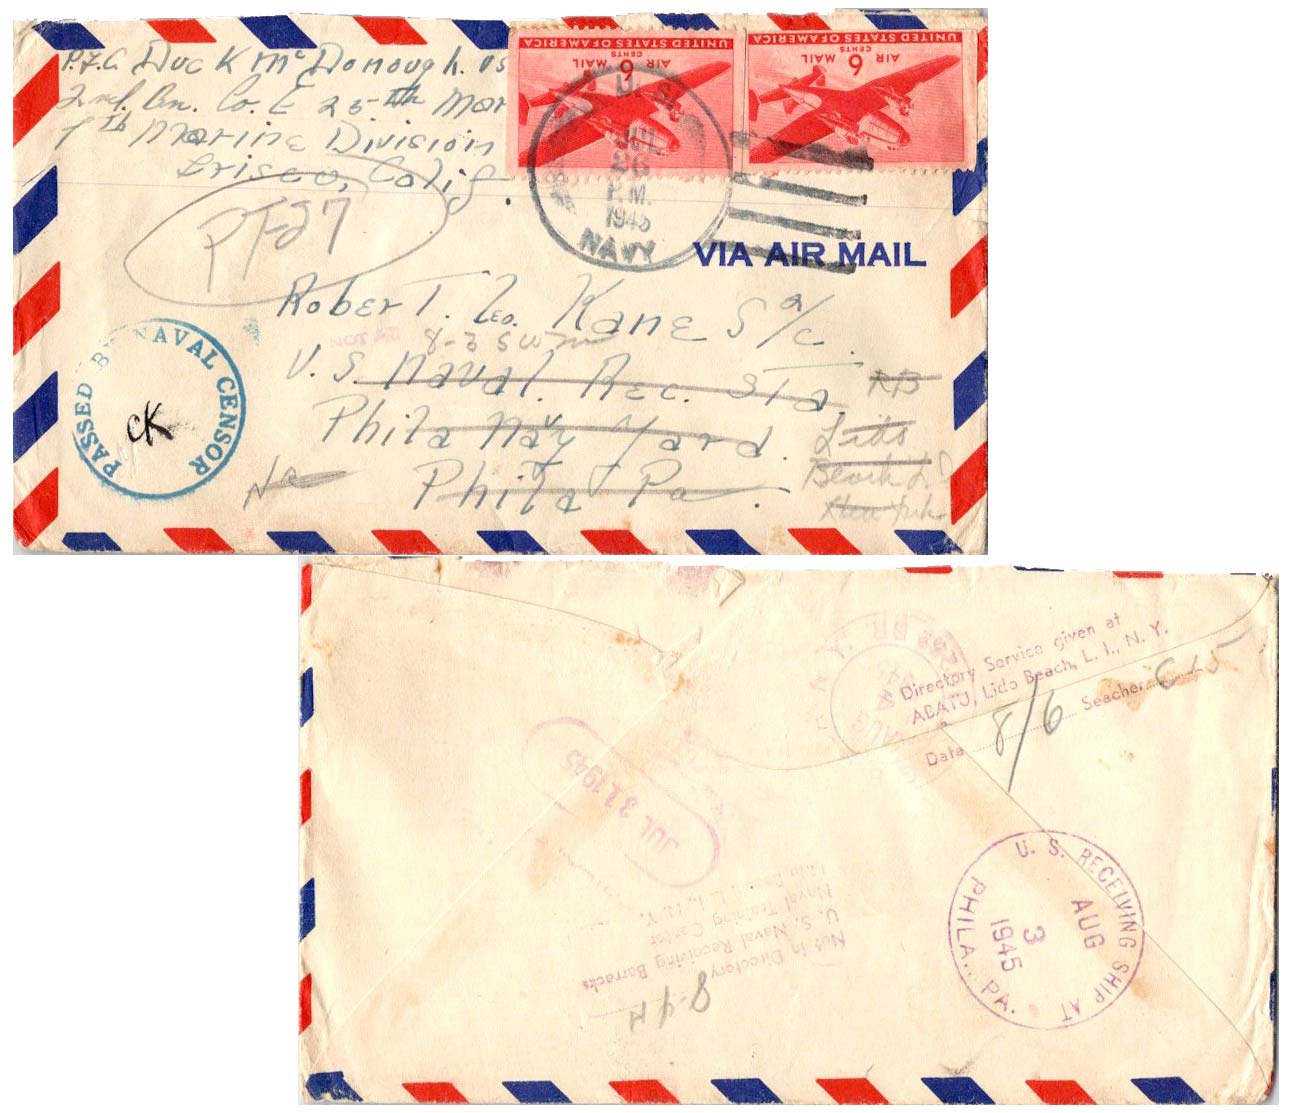 P.F.C Duck McDonough. US
2nd. Bn. Co. E 25-th Mar
4th Marine Division
Frisco, Calif.
UNITED STATES OF AMERICA
6 CENTS AIR MAIL
UNITED STATES OF AMERICA
6 CENTS AIR MAIL
U. S.
JUL
26
P.M.
1945
NAVY
VIA AIR MAIL
PF27
PASSED BY NAVAL CENSOR
CK
Robert Leo. Kane S 2/c.
8-3
U.S. Naval. Rec. Sta. RB
Phila Navy Yard. Lido
Phila Pa. Beach L.I
New York
Directory Service given at
ABATU, Lido Beach, L. I., N. Y.
Date 8/6 Seacher
AUG
JUL 31 1945
U. S. RECEIVING SHIP AT
PHILA., PA.
AUG
3
1945
Not in Directory
U. S. Naval Receiving Barracks
Naval Training Center
Lido Beach, L. I., N. Y.